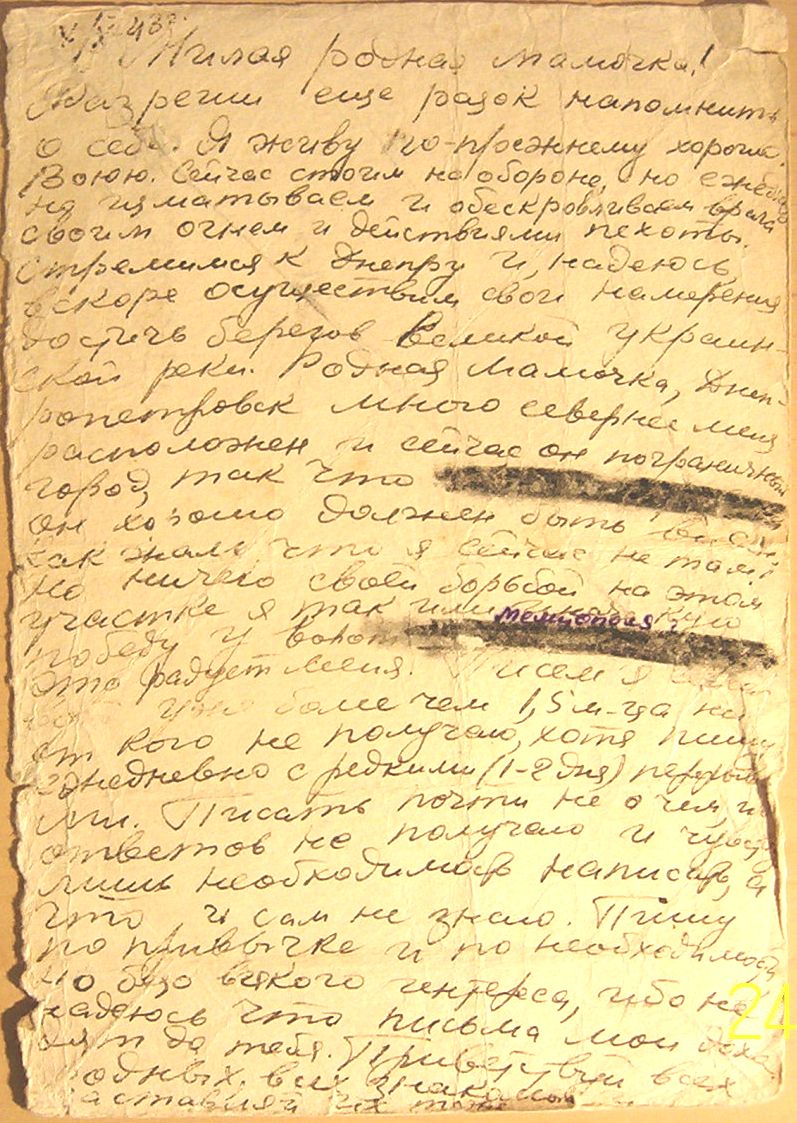 43г.
Милая родная мамочка!
Разреши еще разок напомнить
о себе. Я живу по-прежнему хорошо.
Воюю. Сейчас стоим на обороне, но
изматываем и обескровливаем врага
своим огнем и действиями пехоты.
Стремимся к Днепру и, надеюсь,
вскоре осуществим свои намерения
достичь берегов великой украин-
ской реки. Родная мамочка, Днеп-
ропетровск много севернее меня
расположен и сейчас он пограничный
город, так что
он хорошо должен быть
как жаль, что я сейчас не там!
Но ничего своей борьбой на этом
участке я так или
Мелитополя
победу у ворот
это радует меня. Писем я
уже более чем 1,5 м-ца ни
от кого не получаю, хотя пишу
ежедневно с редкими (1-2 дня)
ми. Писать почти не о чем,
ответов не получаю и
лишь необходимость написать, а
что и сам не знаю. Пишу
по привычке и по необходимости
но безо всякого интереса, ибо не
надеюсь что письма мои дохо
дят до тебя. Приветствуй всех
родных, всех знакомых
24